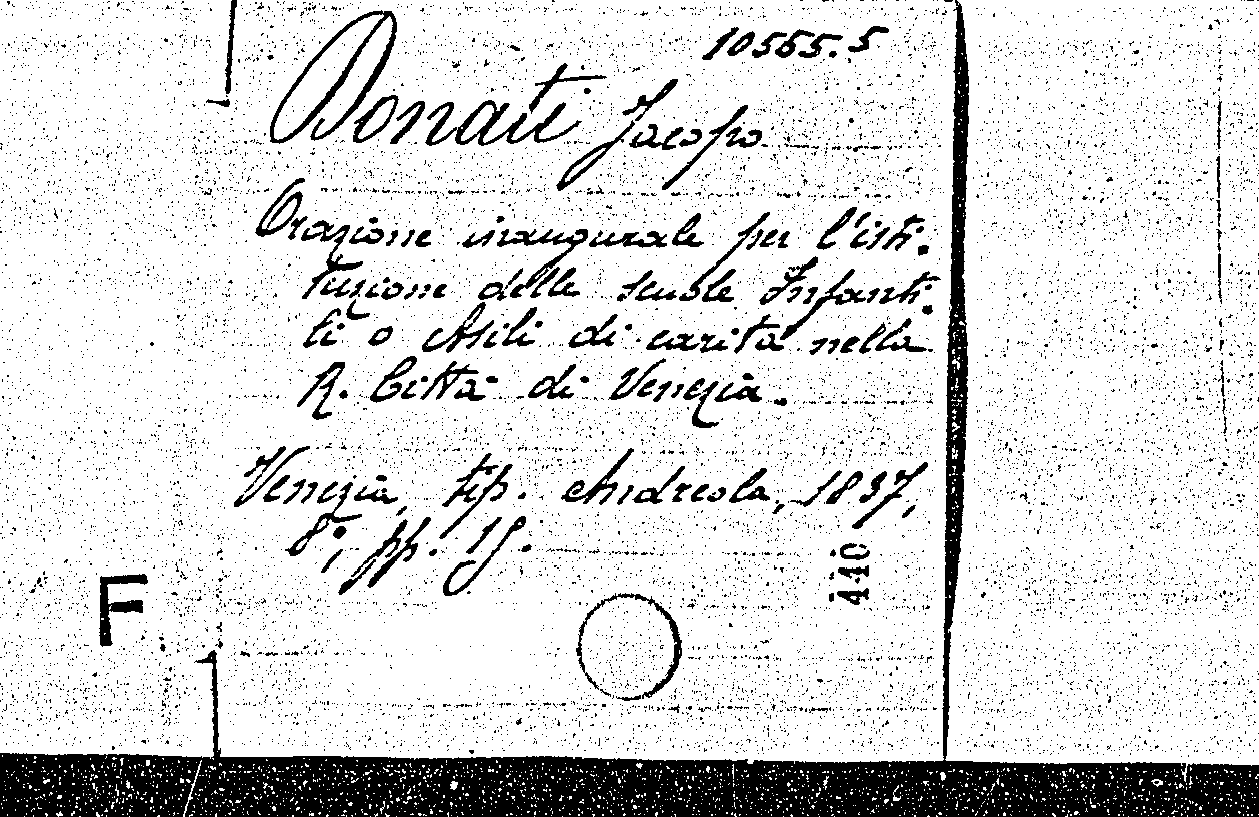 10565.5
Donati Jacopo
Orazione inaugurale per l'isti.
tuzione delle scuole Infanti.
li o Asili di carità nella
R. Città di Venezia.
Venezia, tip. Andreola, 1837,
8°, pp. 15.
440
F